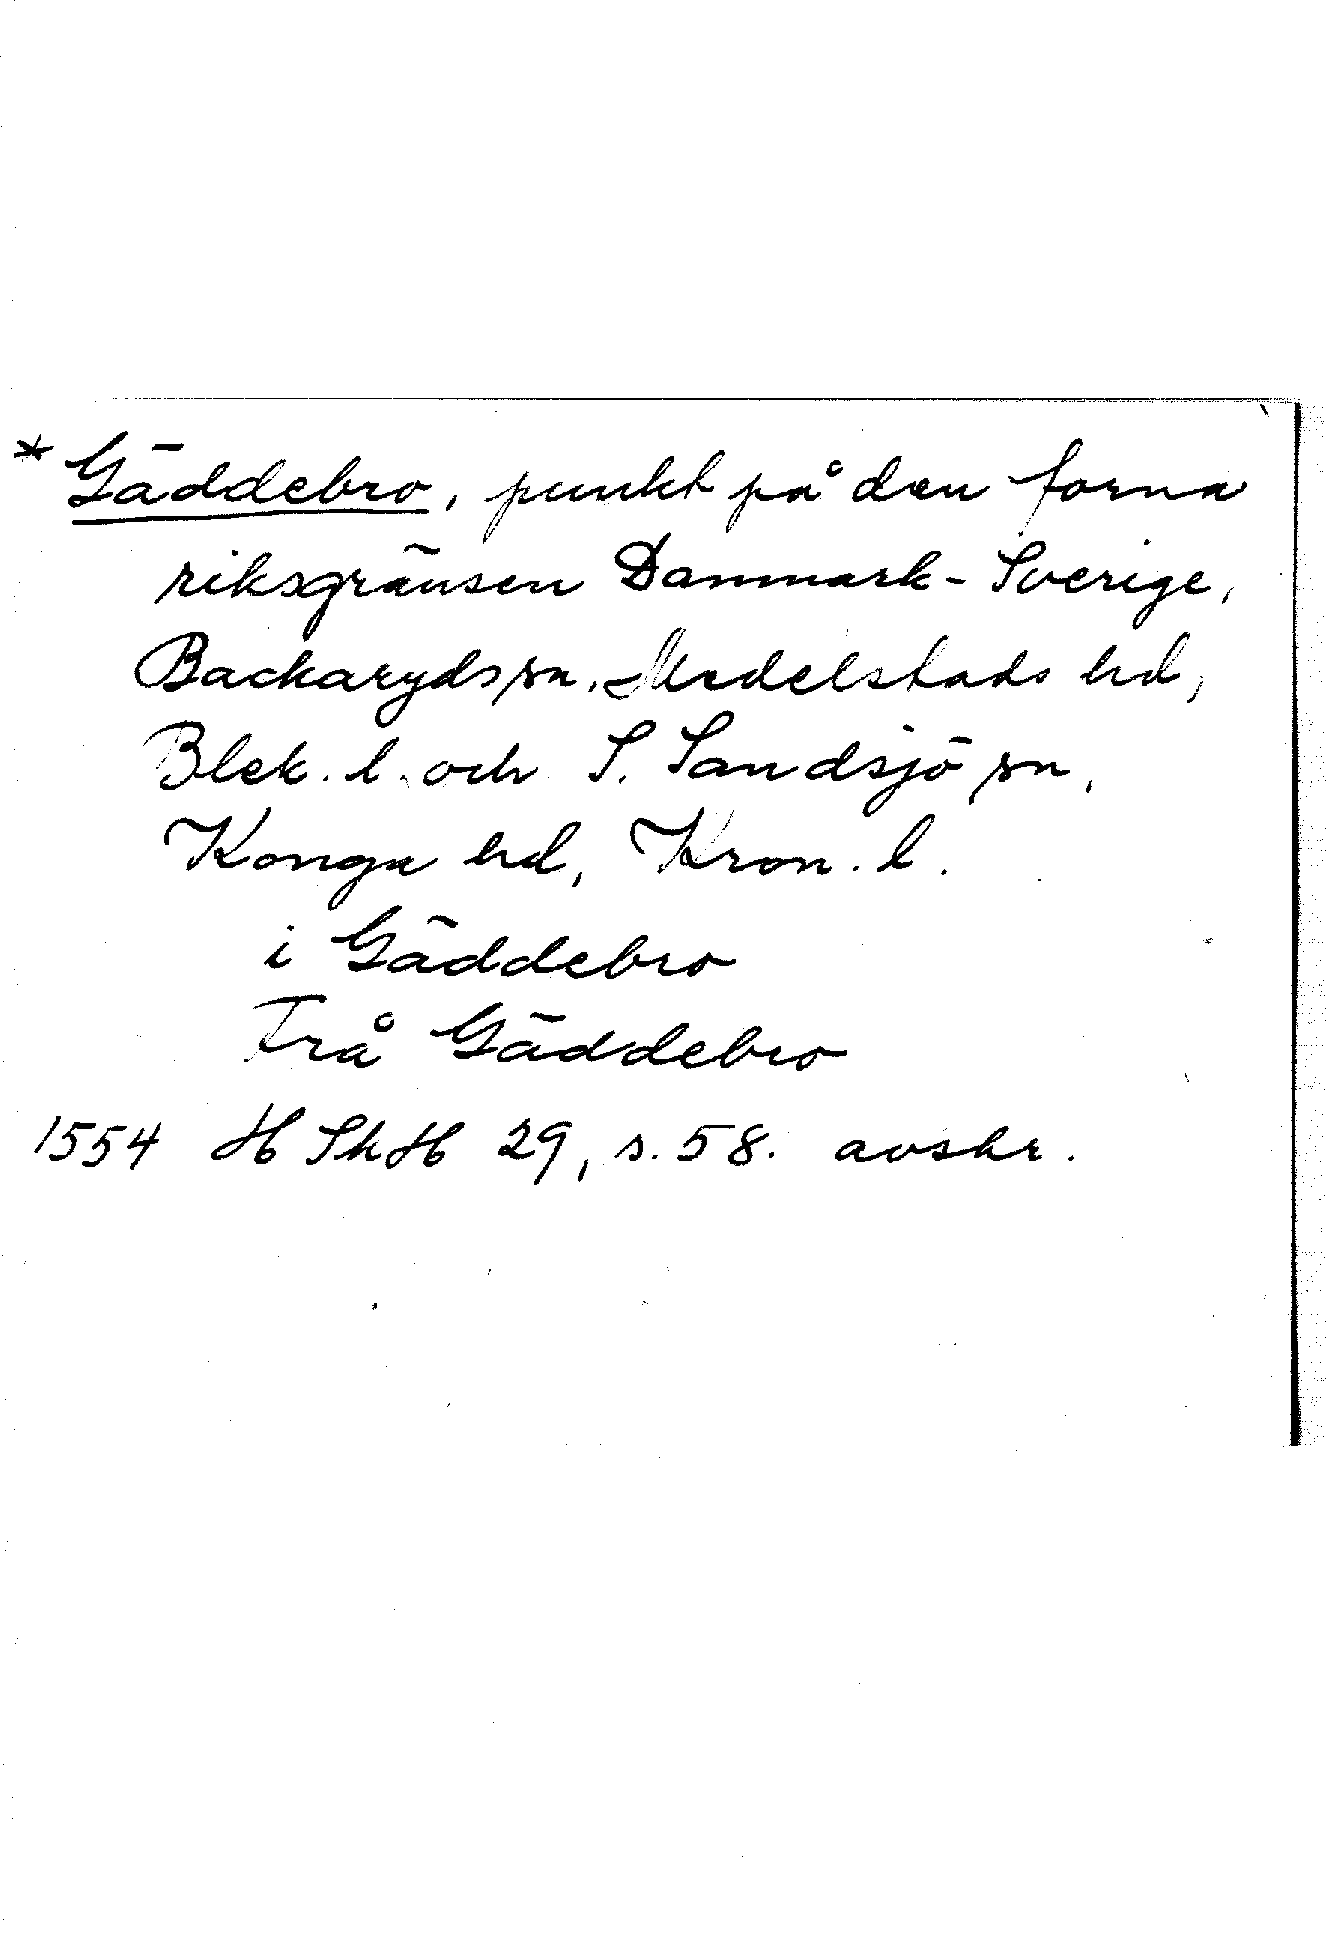 * Gäddebro, punkt på den forna
riksgränsen Danmark - Sverige,
Backaryds sn, Medelstads hd,
Blek. l. och S. Sandsjö sn,
Konga hd, Kron. l.
i Gäddebro
Frå Gäddebro
1554 H Sk H 29, s. 58. avskr.